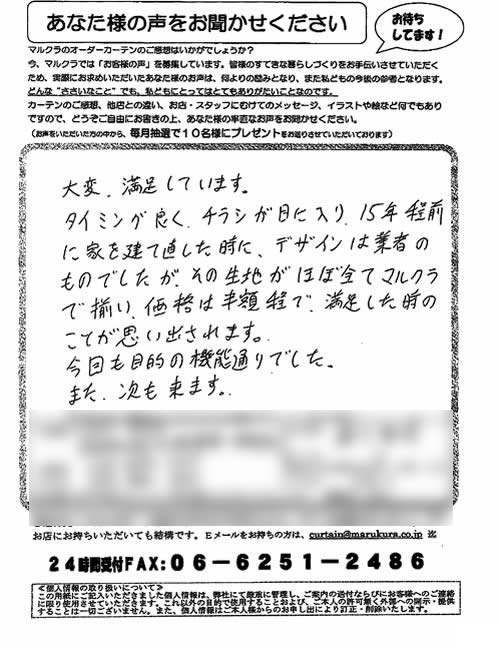 あなた様の声をお聞かせください
お待ち
してます!
マルクラのオーダーカーテンのご感想はいかがでしょうか?
今、マルクラでは「お客様の声」を募集しています。皆様のすてきな暮らしづくりをお手伝いさせていただく
ため、実際にお求めいただいたあなた様のお声は、何よりの励みとなり、また私どもの今後の参考となります。
どんな"ささいなこと"でも、私どもにとってはとてもありがたいことなのです。
カーテンのご感想、他店との違い、お店・スタッフにむけてのメッセージ、イラストや絵など何でもあり
ですので、どうぞご自由にお書きの上、あなた様の率直なお声をお聞かせください。
(お声をいただいた方の中から、毎月抽選で10名様にプレゼントをお送りさせていただいております)
大変、満足しています。
タイミングが良く、チラシが目に入り、15年程前
に家を建て直した時に、デザインは業者の
ものでしたが、その生地がほぼ全てマルクラ
で揃い、価格は半額程で、満足した時の
ことが思い出されます。
今回も目的の機能通りでした。
また、次も来ます。
お店にお持ちいただいても結構です。Eメールをお持ちの方は、curtain@marukura.co.jp
24時間受付FAX:06-6251-2486
<個人情報の取り扱いについて>
この用紙にご記入いただきました個人情報は、弊社にて厳重に管理し、ご案内の送付ならびにお客様へのご連絡
に限り使用させていただきます。これ以外の目的で使用すること、および、ご本人の許可無く外部への開示・提供
することは一切ございません。また、個人情報はご本人様からのお申し出により訂正・削除いたします。